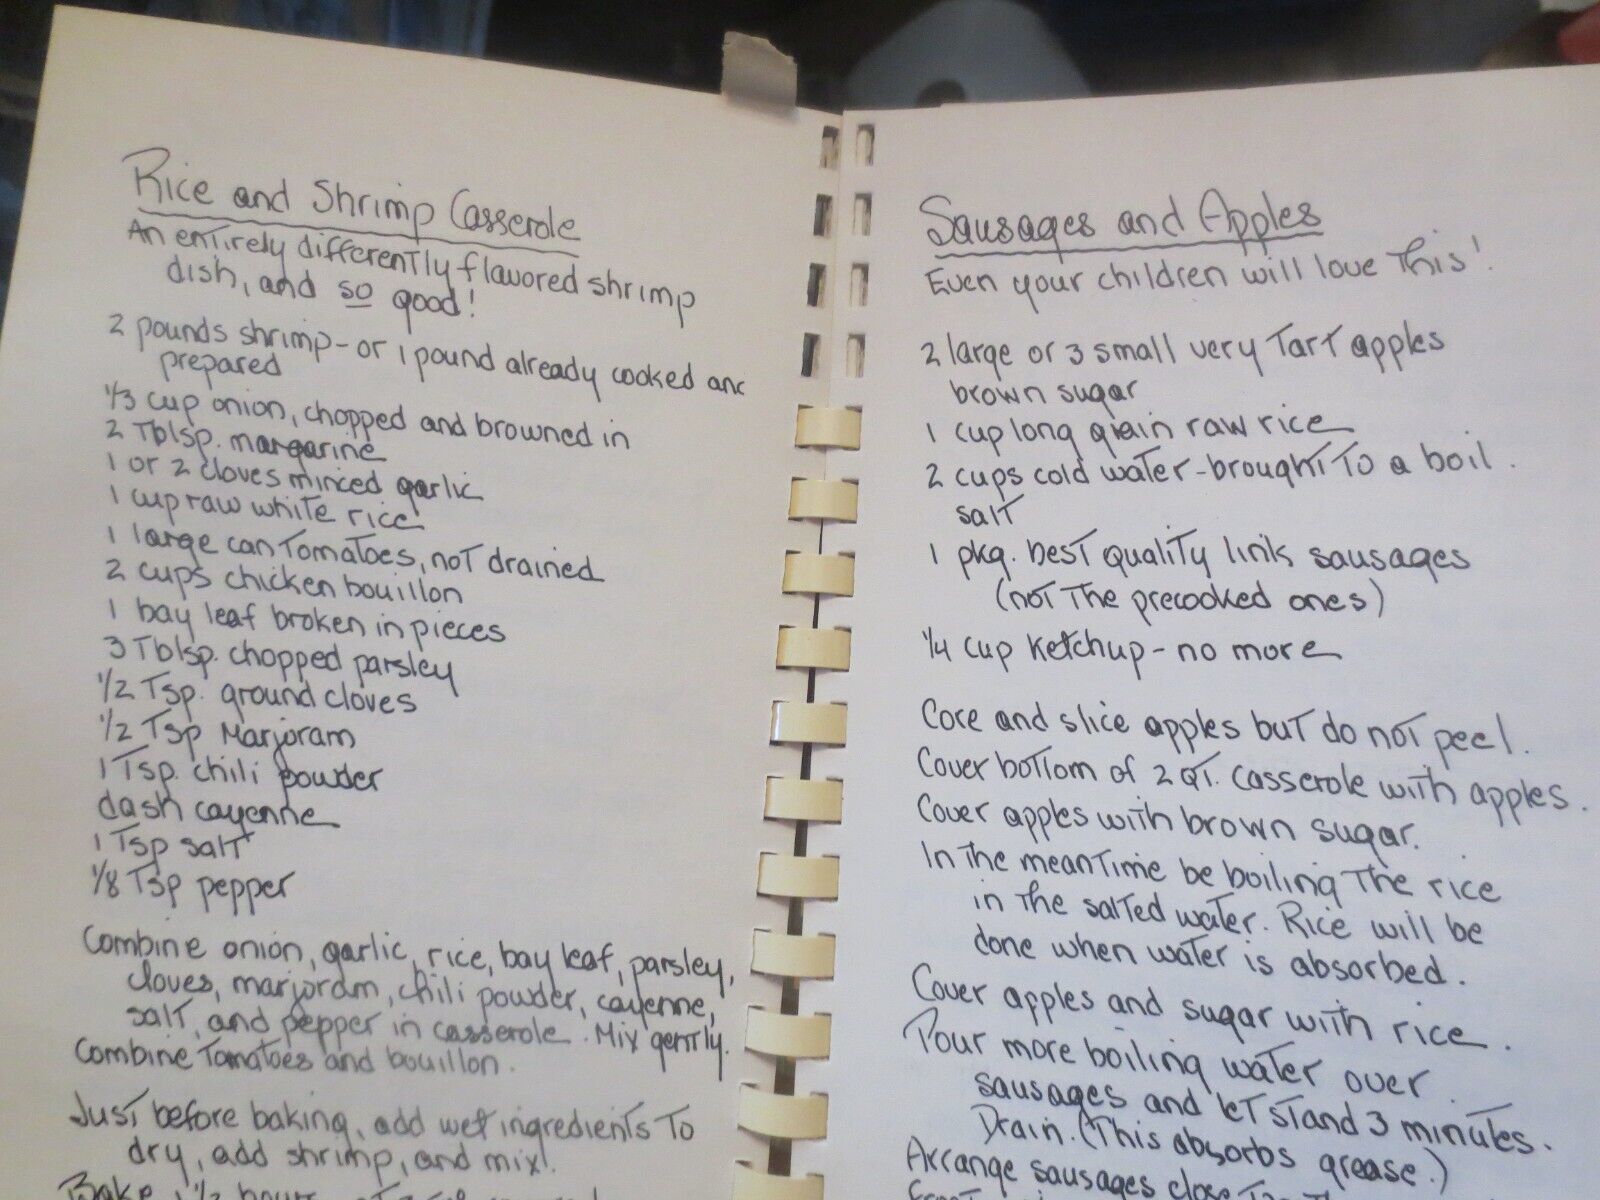 Rice and Shrimp Casserole
An entirely differently flavored shrimp
dish, and so good!
2 pounds shrimp - or 1 pound already cooked and
prepared
1/3 cup onion, chopped and browned in
2 Tblsp. margarine
1 or 2 cloves minced garlic
1 cup raw white rice
1 large can tomatoes, not drained
2 cups chicken bouillon
1 bay leaf broken in pieces
3 Tblsp. chopped parsley
1/2 Tsp. ground cloves
1/2 Tsp Marjoram
1 Tsp. chili powder
dash cayenne
1 Tsp salt
1/8 Tsp pepper
Combine onion, garlic, rice, bay leaf, parsley,
cloves, marjoram, chili powder, cayenne,
salt, and pepper in casserole. Mix gently.
Combine tomatoes and bouillon.
Just before baking, add wet ingredients to
dry, add shrimp, and mix.
Bake 1 1/2 hours
Sausages and Apples
Even your children will love this!
2 large or 3 small very tart apples
brown sugar
1 cup long grain raw rice
2 cups cold water - brought to a boil.
salt
1 pkg. best quality link sausages
(not the precooked ones)
1/4 cup ketchup - no more
Core and slice apples but do not peel.
Cover bottom of 2 QT. casserole with apples.
Cover apples with brown sugar.
In the meantime be boiling the rice
in the salted water. Rice will be
done when water is absorbed.
Cover apples and sugar with rice.
Pour more boiling water over
sausages and let stand 3 minutes.
Drain. (This absorbs grease.)
Arrange sausages close to